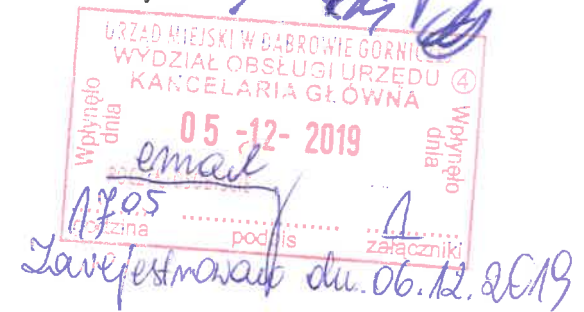 URZĄD MIEJSKI W DĄBROWIE GÓRNICZEJ
WYDZIAŁ OBSŁUGI URZĘDU 4
KANCELARIA GŁÓWNA
Wpłynęło dnia
05 -12- 2019
Wpłynęło dnia
email
17 05
godzina
podpis
1
załączniki
Zarejestrowano dn. 06.12.2019